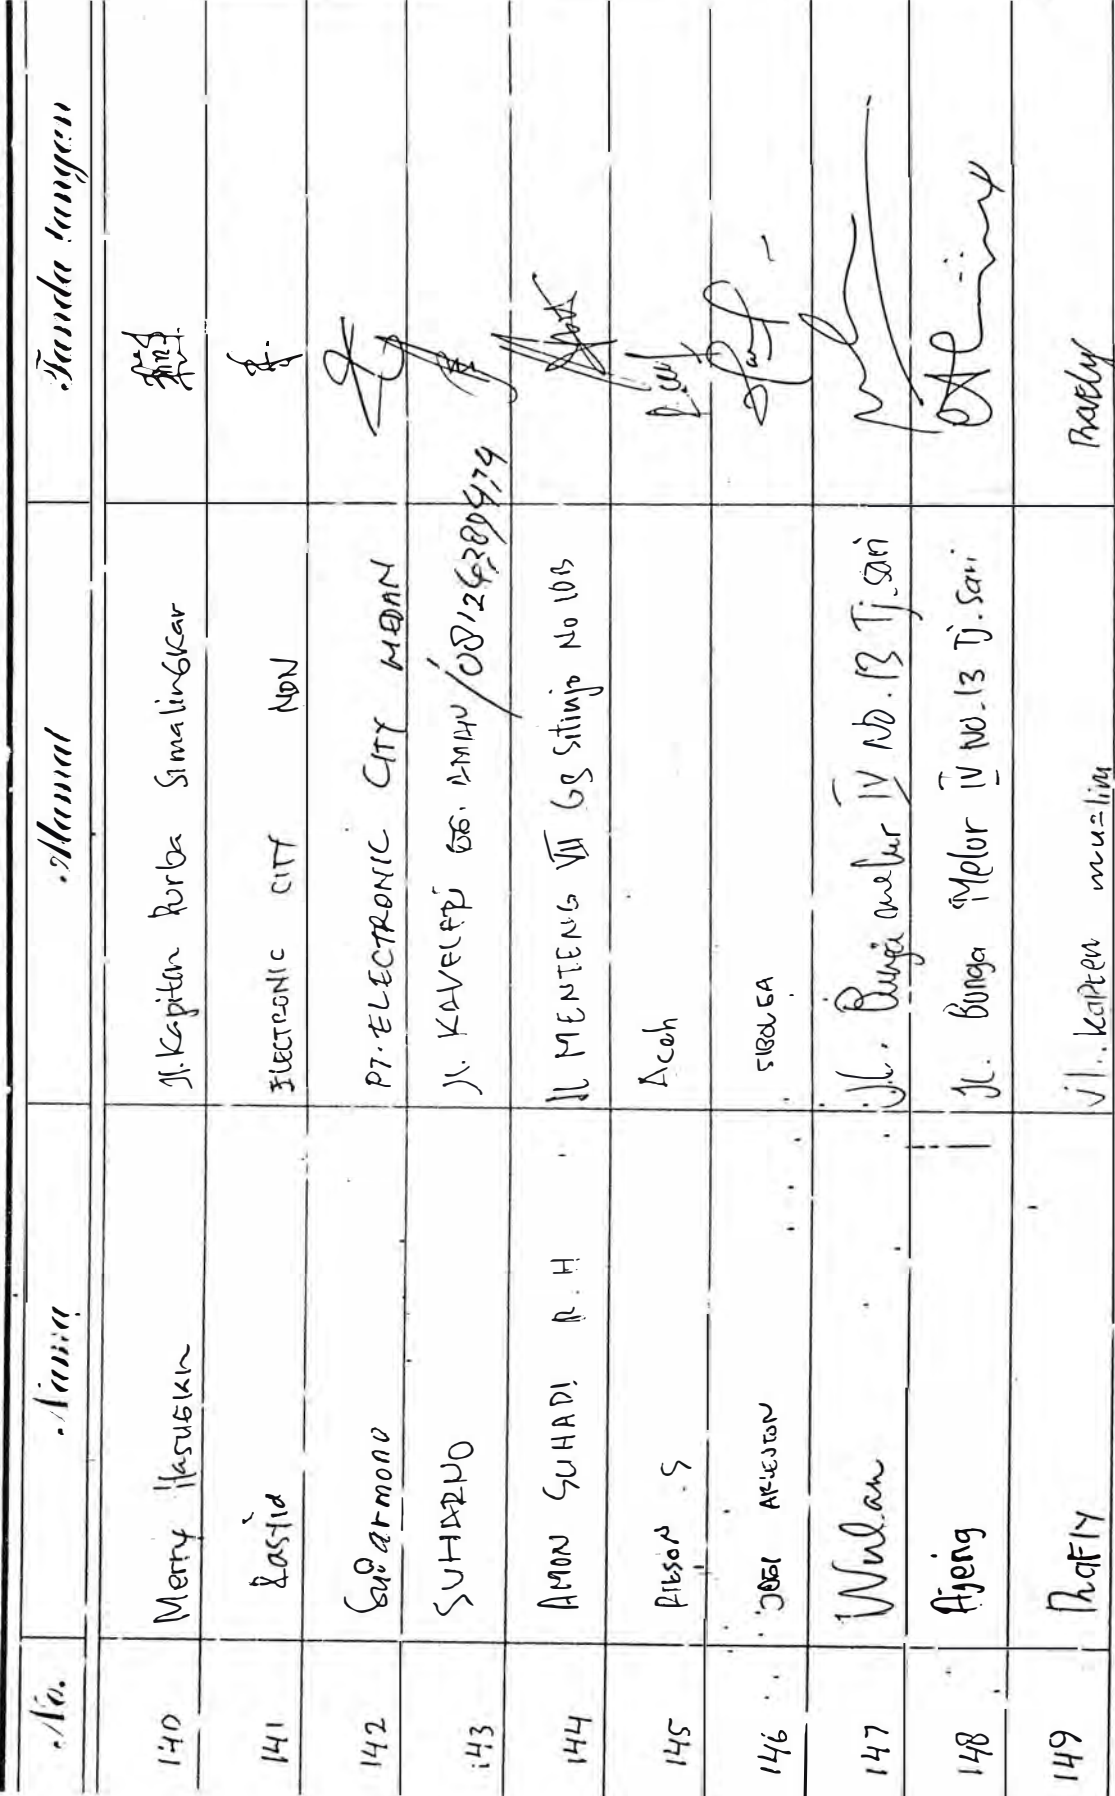 No. Nama Alamat Tanda tangan
140 Merry Hasugian Jl. Kapiten Purba Simalingkar
141 Rasyid ELECTRONIC CITY MDN
142 Suparmono PT. ELECTRONIC CITY MEDAN
143 SUHARNO Jl. KAVELERI GG. AMAN
144 AMON SUHADI R.H Jl MENTENG VII Gg Sitinjo No 10B
145 RIBSON .S Aceh
146 ARLESTON SIBOLGA
147 Wulan JL. Bunga melur IV NO.13 Tj.sari
148 Ajeng JL. Bunga Melur IV NO.13 Tj.Sari
149 Jl. kapten muslim